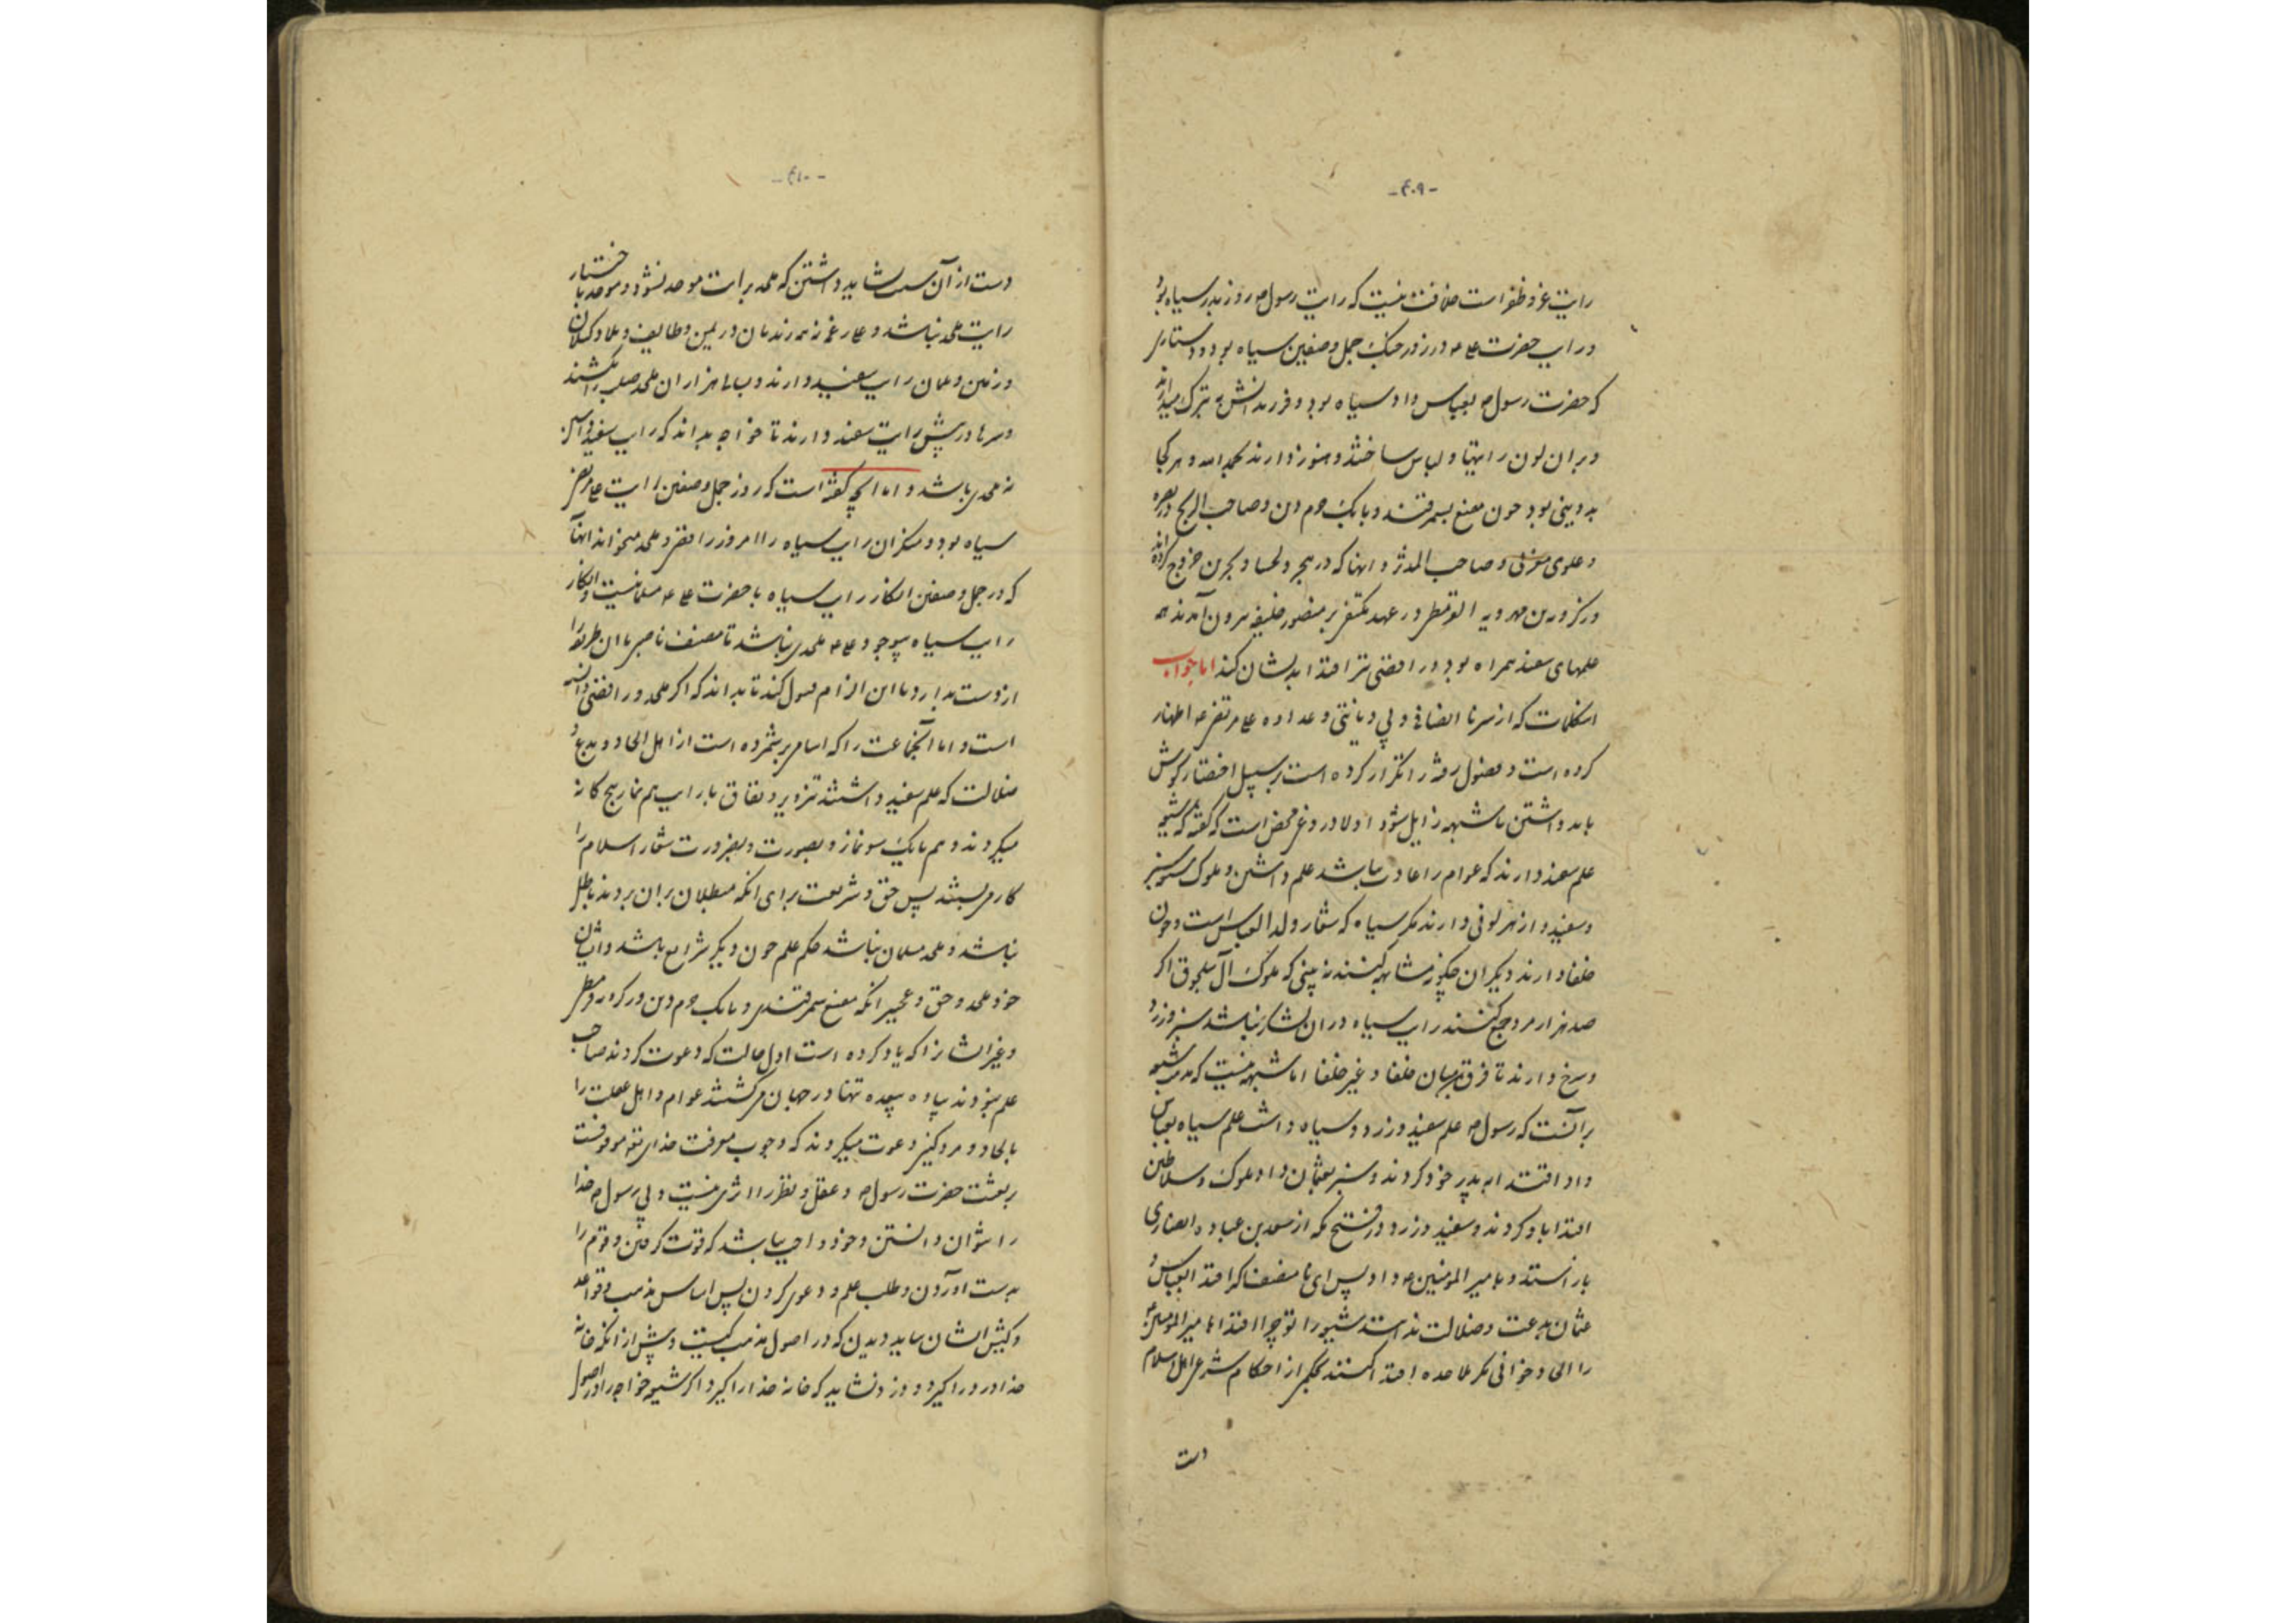 -۴۰۹-
رایت عز و ظفر است خلافت نیست که رایت رسول ص روز بدر سیاه بود
و رایت حضرت علی ع در روز جنک جمل و صفین سیاه بود و دستاری
که حضرت رسول ص بعباس داد سیاه بود و فرزندانش به تبرک میدارند
و بران لون رایتها و لباس ساختند و هنوز دارند بحمد الله و هر کجا
بددینی بود چون مقنع سمرقند و بابک خرم دین و صاحب الزنج در بصره
و علوی مغربی و صاحب المدثر و انها که در هجر و لحسا و بحرین خروج کرده‌اند
و زکرویه بن مهرویه القرمطی در عهد مکتفی بر منصور خلیفه بیرون آمدند همه
علمهای سفید همراه بود و رافضی نیز اقتدا بدیشان کند اما جواب
اینکلمات که از سر نا انصافی و بی دیانتی و عداوه علی مرتضی ع اظهار
کرده است و فصول رفته را تکرار کرده است بر سبیل اختصار گوش
باید داشتن تا شبهه زایل شود اولا دروغ محض است که گفته که شیعه
علم سفید دارند که عوام را عادت نباشد علم داشتن و ملوک شیعه سبز
و سفید و از هر لونی دارند مگر سیاه که شعار ولد العباس است و چون
خلفا دارند دیگران چگونه مشابهه کنند نه بینی که ملوک آل سلجوق اگر
صد هزار مرد جمع کنند رایت سیاه در ان لشکر نباشد سبز و زرد
و سرخ دارند تا فرق میان خلفا و غیر خلفا اما شبهه نیست که مذهب شیعه
برآنست که رسول ص علم سفید و زرد و سیاه داشت علم سیاه بعباس
داد اقتدا به پدر خود کردند و سبز بعثمان داد ملوک و سلاطین
اقتدا باو کردند و سفید و زرد در فتح مکه از سعد بن عباده انصاری
باز استد و بامیر المؤمنین ع داد پس ای نا مصنف اگر اقتدا بعباس و
عثمان بدعت و ضلالت نداستند شیعه را تو چرا اقتدا بامیر المؤمنین ع
را الحاد خوانی مگر ملاحده اقتدا کنند بحکمی از احکام شرع اهل اسلام
دست
-۴۱۰-
دست از آن سبب نشاید داشتن که ملحد برایت موحد نشود و موحد باختیار
رایت ملحد نباشد و علی رغم در یمن و طایف و بلاد کیلان
و زمین و علمان رایت سفید دارند و سالی هزاران ملحد صلب را بکشند
و سرها در پیش رایت سفید دارند تا خواجه بداند که رایت سفید داشتن
نه ملحدی باشد و اما انچه گفته است که روز جمل و صفین رایت علی مرتضی
سیاه بود و منکران رایت سیاه را امروز رافضی و ملحد میخواند انها
که در جمل و صفین انکار رایت سیاه با حضرت علی ع مسلمانیست و انکار
رایت سیاه بوجود علی ع ملحدی نباشد تا مصنف ناصبی یا ان طریقه را
از دست بدارد یا این الزام قبول کند تا بداند که اگر ملحد و رافضی
است و اما آنجماعت را که اسامی برشمرده است از اهل الحاد و بدعة و
ضلالت که علم سفید داشتند تزویر و نفاق با رایت هم نماز پنج کانه
میکردند و هم بانک سو نماز و بصورت و بضرورت شعار اسلام را
کار می بستند پس حق و شریعت برای انکه مبطلان بران بروند باطل
نباشد و ملحد مسلمان نباشد حکم علم چون دیگر شرایع باشد و ایشان
خود ملحد و حق و عجبر انکه مقنع سمرقندی و بابک خرم دین و زکرویه قرمطی
و غیر ایشانرا که یاد کرده است اول حالت که دعوت کردند صاحب
علم نبودند پیاده تنها در جهان می گشتند عوام و اهل غفلت را
بالحاد و مردکی دعوت میکردند که وجوب معرفت خدای تعه موقوفست
بر بعثت حضرت رسول ص و عقل و نظر را اثری نیست و بی رسول ص خدا
را نتوان دانستن و خود واجب نباشد که قوت گرفتن و قوم را
بدست اوردن و طلب علم و دعوی کردن پس اساس مذهب و قواعد
و کیش ایشان بباید دیدن که در اصول مذهب کیست و پیش از انکه خانه
خدا درد را گیرد و درد نشاید که خانه خدا را گیرد اگر شیعه خواجه را در اصول